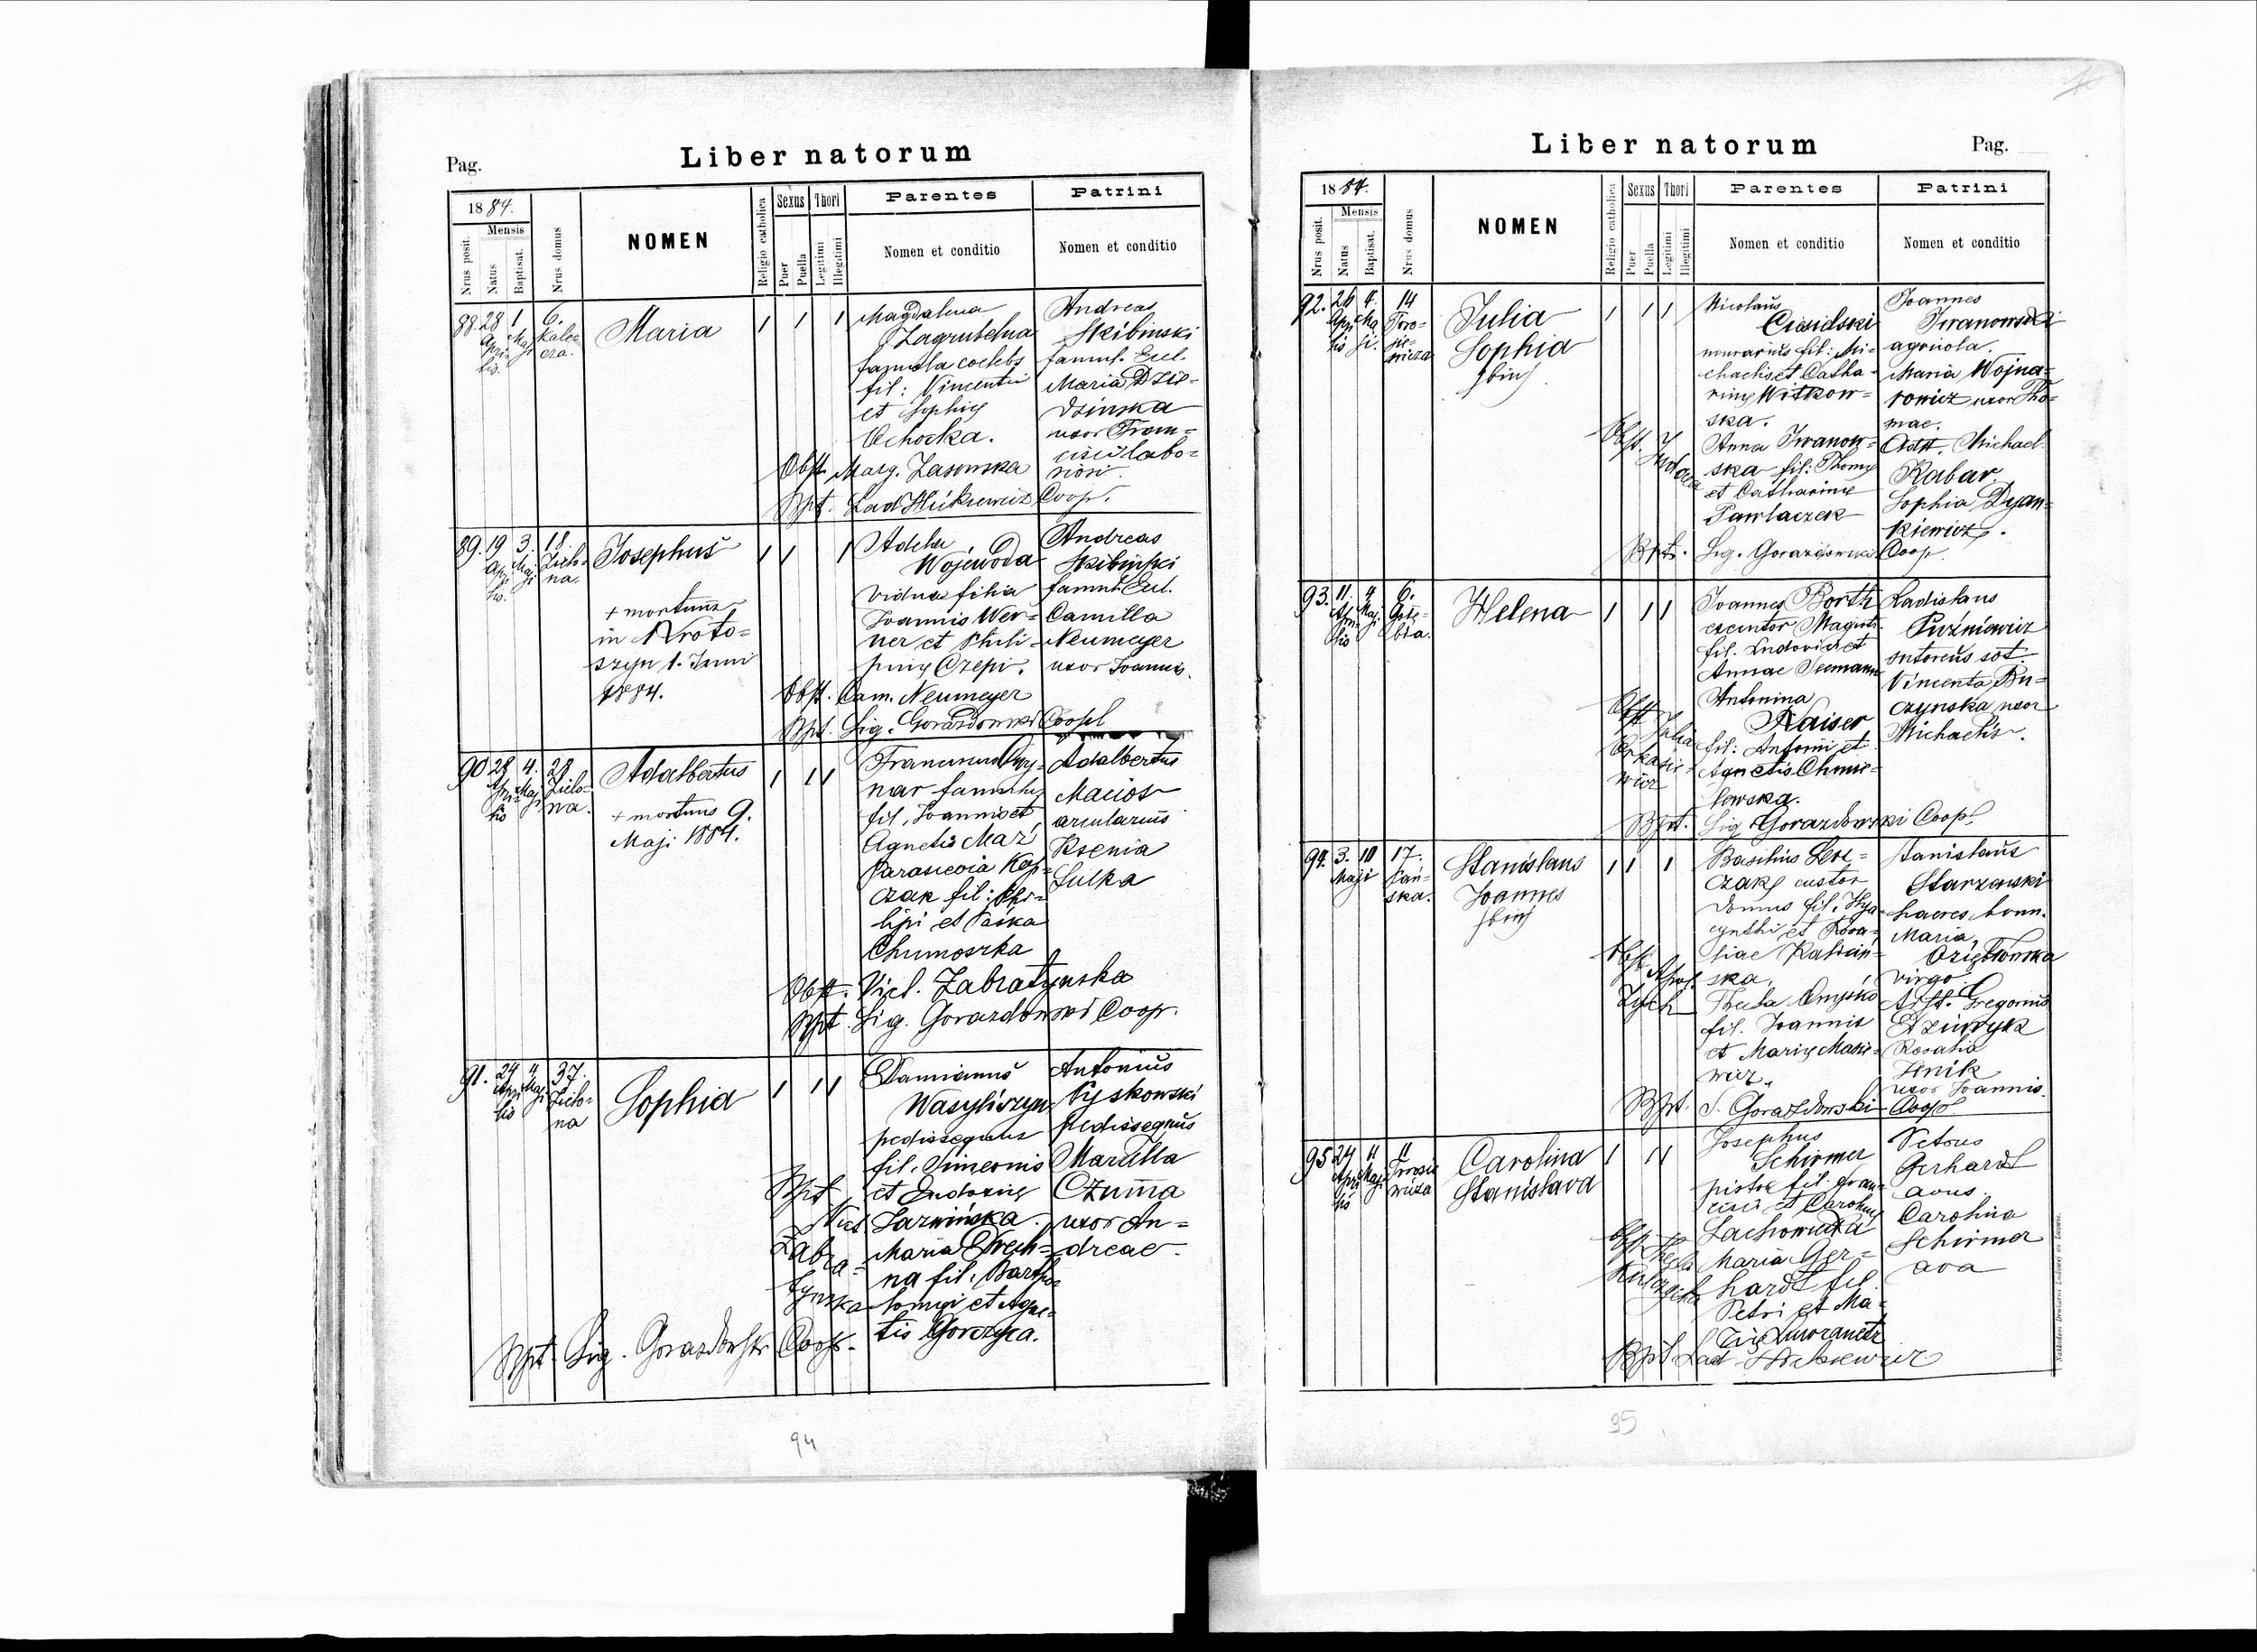 Pag.
Liber natorum
1884.
Mensis
Nrus posit.
Natus
Baptisat.
Nrus domus
NOMEN
Religio catholica
Sexus
Puer
Puella
Thori
Legitimi
Illegitimi
Parentes
Nomen et conditio
Patrini
Nomen et conditio
88. 28 Aprilis. 1 Maji
6.
Kalecza.
Maria
1 1 1
Magdalena
famula coelebs
fil: Vincentii
et Sophię
Ochocka.
Obst. Marg. Zasowska
Bpt. Lad Hickiewicz Coop.
Andreas
Skibinski
famul. Eccl.
Maria Dzie-
dzinska
uxor Fran-
cisci labo-
riosi.
89. 19 Aprilis. 3. Maji
18
Zielo-
na.
Josephus
+ mortuus
in Kroto=
szyn 1. Junii
1884.
1 1 1
Adela
Wojewoda
vidua filia
Joannis Wer-
ner et Phili-
pinę Czepi.
Obst. Cam. Neumeyer
Bpt. Sig. Gorazdowski Coop
Andreas
Skibinski
famul. Eccl.
Camilla
Neumeyer
uxor Joannis.
90 28 Aprilis 4. Maji
28
Zielo-
na.
Adalbertus
+ mortuus 9.
Maji 1884.
1 1 1
nar famulus
fil. Joannis et
Agnetis Maź
Parascevia Kop-
czak fil: Phi-
lipi et Paśka
Chumoszka
Obst. Vict. Zabratynska
Bpt. Sig. Gorazdowski Coop.
Adalbertus
Macios
arcularius
Ksenia
Sulka
91. 24 Aprilis 4 Maji
37.
Zielo-
na
Sophia
1 1 1
Damianus
Wasyliszyn
pedissequus
fil. Simeonis
et Eudoxię
Jarwińska.
Maria Drech-
na fil. Bartho-
lomęi et Agne-
tis Gorczyca.
Vict.
Zabra-
tynska
Bpt. Sig. Gorazdowski Coop.
Antonius
Pyskowski
pedissequus
Marcella
Czuma
uxor An=
dreae.
94
Liber natorum
Pag.
1884.
Mensis
Nrus posit.
Natus
Baptisat.
Nrus domus
NOMEN
Religio catholica
Sexus
Puer
Puella
Thori
Legitimi
Illegitimi
Parentes
Nomen et conditio
Patrini
Nomen et conditio
92. 26 Aprilis 4. Maji.
14
Toro-
sie-
wicza
Julia
Sophia
(bin)
1 1 1
Nicolaus
murarius fil: Mi-
chaelis et Catha-
rinę Witkow-
ska.
Anna Iwanow-
ska fil: Thomę
et Catharinę
Pawlaczek
Obst.
Bpt. Sig. Gorazdowski Coop.
Joannes
Iwanowski
agricola.
Maria Wojna-
rowicz uxor Tho-
mae.
Adst. Michael
Kabar
Sophia Dyan-
kiewicz.
93. 11. Aprilis 4 Maji
6.
Gołę-
bia.
Helena
1 1 1
Joannes Borth
executor Magistr.
fil. Ludovici et
Annae Seemann
Antonina
Kaiser
fil: Antonii et
Agnetis Chmie-
lowska.
Obst. Julia
Bpt. Sig Gorazdowski Coop.
Ladislaus
Puźniewicz
sutoreus sot.
Vincenta Bu-
czynska uxor
Michaelis.
94. 3. 10
Maji
17.
Pań-
ska.
Stanislaus
Joannes
(bin)
1 1 1
Basilius Lesz-
czak custor
domus fil. Hya-
cynthi et Rosa-
liae Kalicin-
ska.
Thecla Onyśko
fil. Joannis
et Marię Masie-
wicz.
Obst.
Zych
Bpt. S. Gorazdowski Coop
Stanislaus
Starzewski
haeres bonn.
Maria
virgo.
Asst. Gregorius
Rosalia
Hnik
uxor Joannis.
95 24 Aprilis 11 Maji
11
Torosie
wicza
Carolina
Stanislava
1 1 1
Josephus
Schirmer
pistor fil. Fran-
cisci et Carolinę
Lachowicka
Maria Ger-
hardt fil.
Petri et Ma-
Obst. Thecla
Bpt Lad Hickiewicz
Petrus
Gerhardt
avus.
Carolina
Schirmer
ava
95